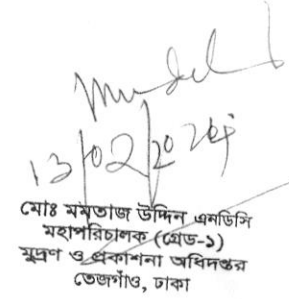 13/02/2024
মোঃ মমতাজ উদ্দিন এনডিসি
মহাপরিচালক (গ্রেড-১)
মুদ্রণ ও প্রকাশনা অধিদপ্তর
তেজগাঁও, ঢাকা